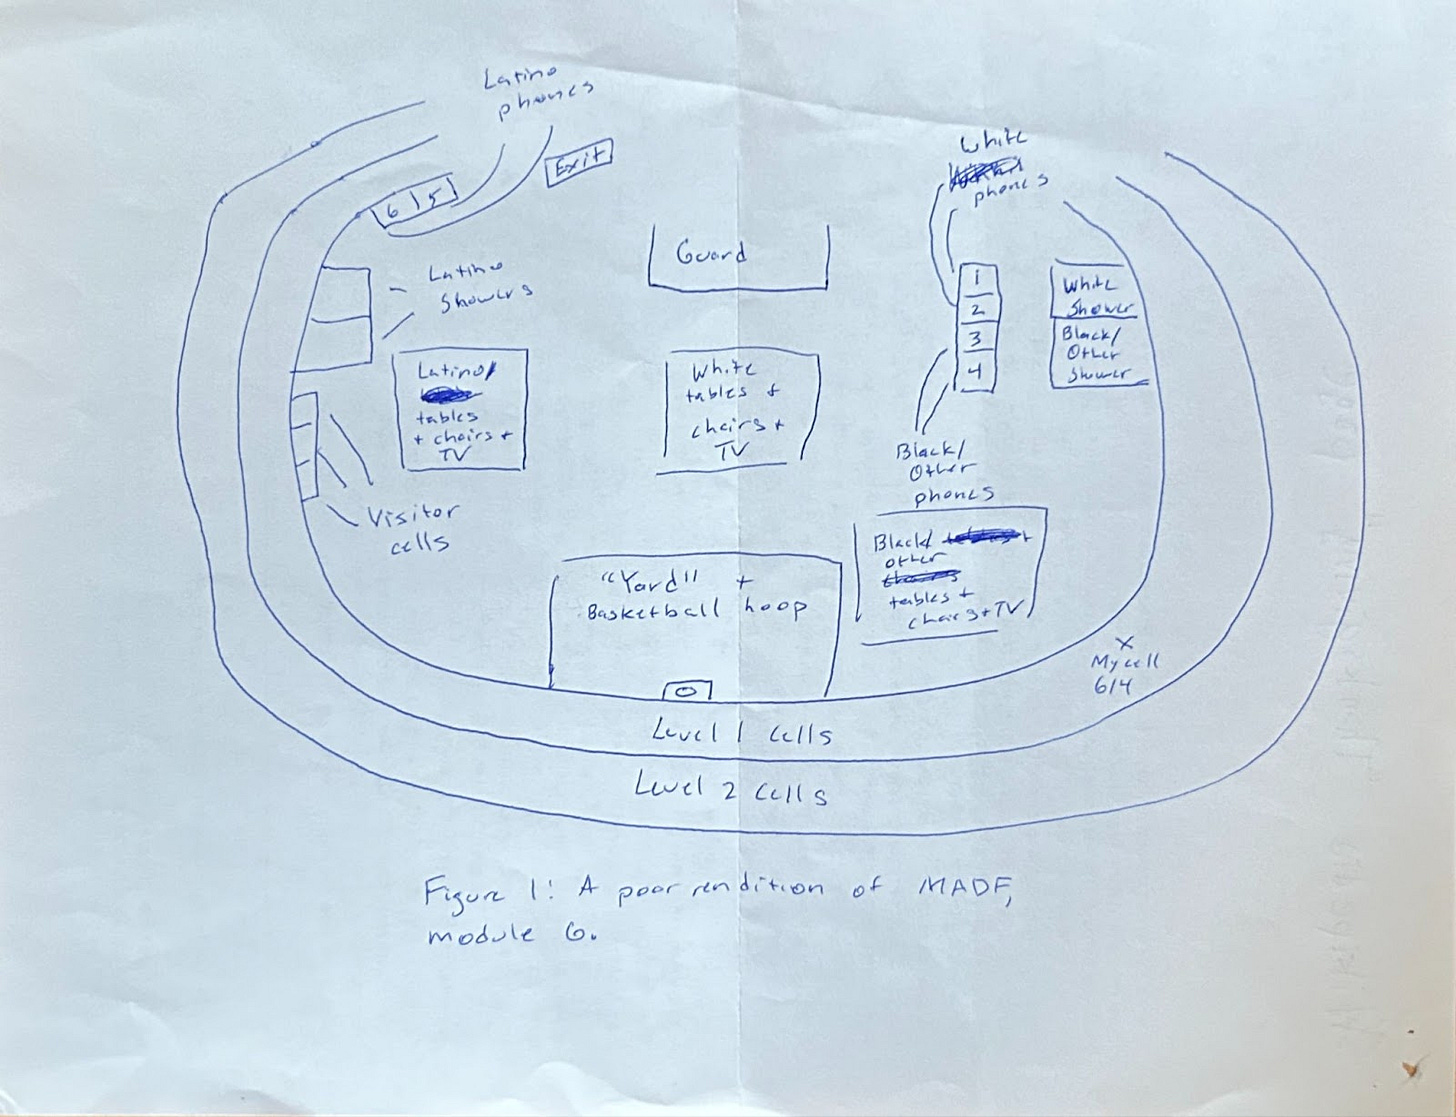 Latino
phones
Exit
6 5
White
phones
Guard
Latino
Showers
1
2
3
4
White
Shower
Black/
Other
Shower
Latino/
tables
+ chairs +
TV
White
tables +
chairs +
TV
Black/
Other
phones
Visitor
cells
Black/ +
other
tables +
chairs + TV
"Yard" +
Basketball hoop
X
My cell
614
Level 1 cells
Level 2 cells
Figure 1: A poor rendition of MADF,
module 6.